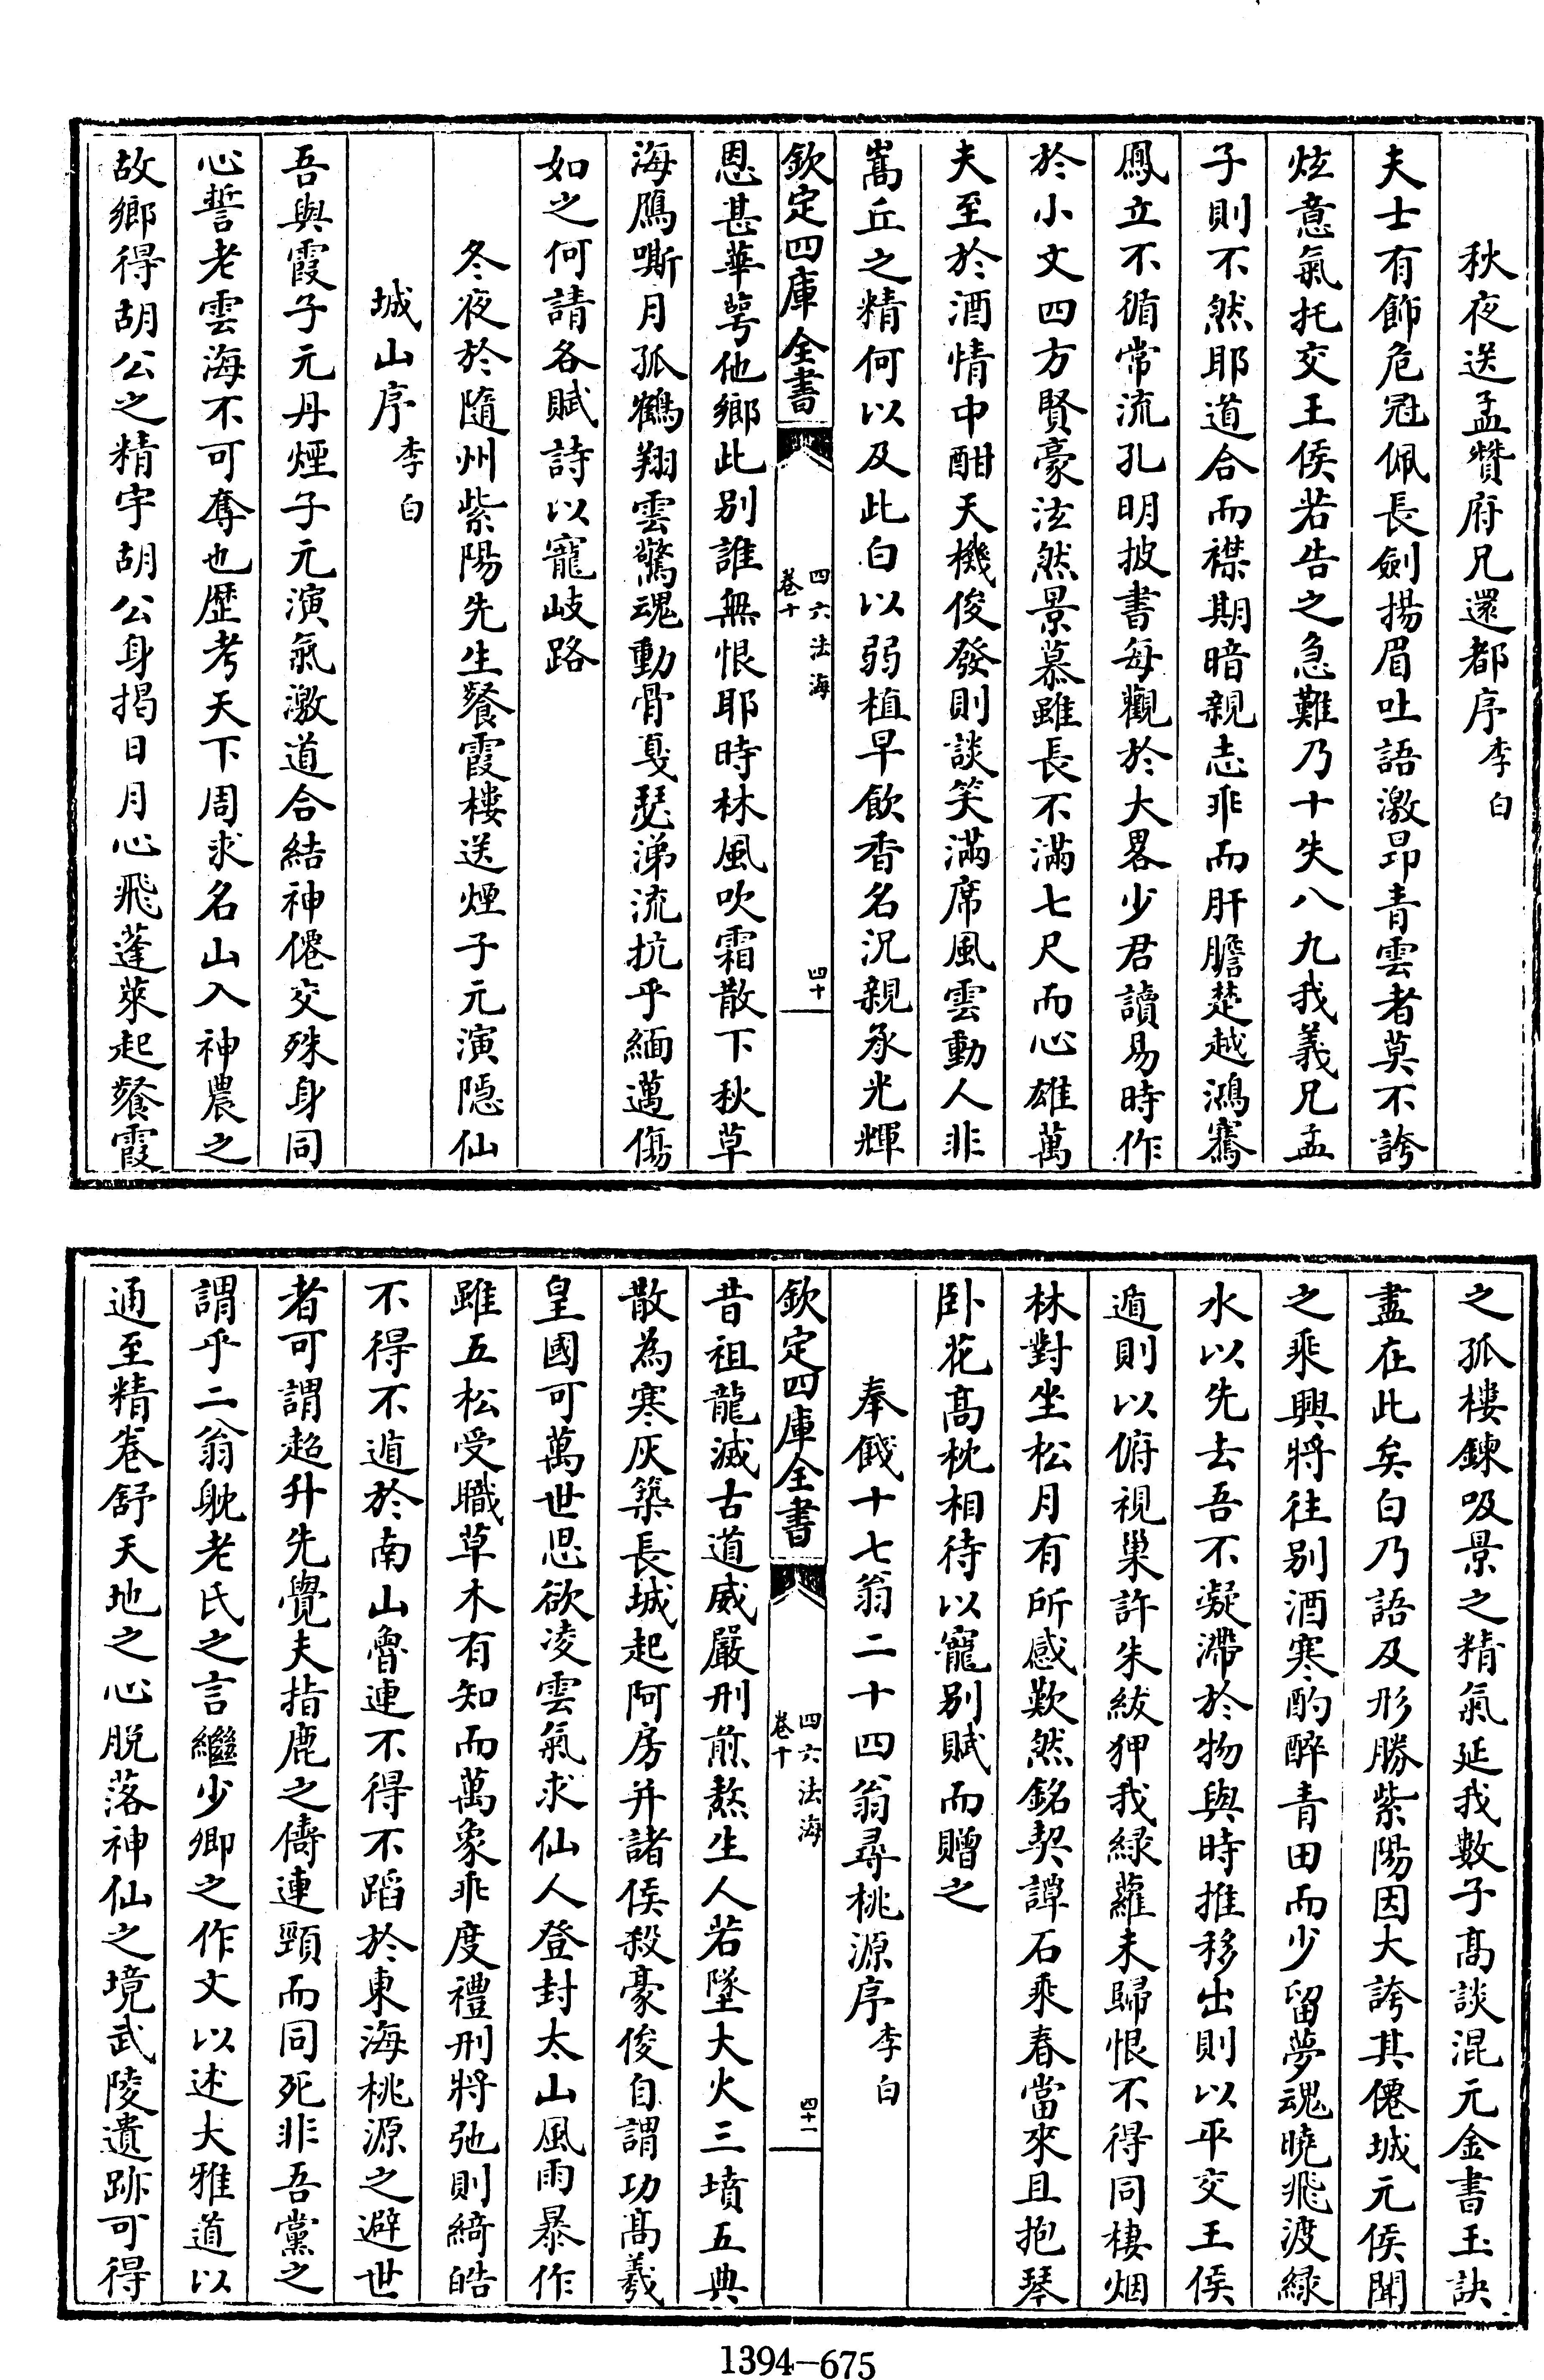 秋夜送孟贊府兄還都序李白
夫士有飾危冠佩長劍揚眉吐語激昂青雲者莫不誇
炫意氣托交王侯若告之急難乃十失八九我義兄孟
子則不然耶道合而襟期暗親志乖而肝膽楚越鴻騫
鳳立不循常流孔明披書每觀於大畧少君讀易時作
於小文四方賢豪泫然景慕雖長不滿七尺而心雄萬
夫至於酒情中酣天機俊發則談笑滿席風雲動人非
嵩丘之精何以及此白以弱植早飲香名況親承光輝
欽定四庫全書
四六法海
卷十
四十
恩甚華萼他鄉此别誰無恨耶時林風吹霜散下秋草
海鴈嘶月孤鶴翔雲驚魂動骨戛瑟涕流抗乎緬邁傷
如之何請各賦詩以寵岐路
冬夜於隨州紫陽先生餐霞樓送煙子元演隱仙
城山序李白
吾與霞子元丹煙子元演氣激道合結神僊交殊身同
心誓老雲海不可奪也歷考天下周求名山入神農之
故鄉得胡公之精宇胡公身揭日月心飛蓬萊起餐霞
之孤樓鍊吸景之精氣延我數子高談混元金書玉訣
盡在此矣白乃語及形勝紫陽因大誇其僊城元侯聞
之乘興將往别酒寒酌醉青田而少留夢魂曉飛渡緑
水以先去吾不凝滯於物與時推移出則以平交王侯
遁則以俯視巢許朱紱狎我緑蘿未歸恨不得同棲烟
林對坐松月有所感歎然銘契譚石乘春當來且抱琴
卧花高枕相待以寵别賦而贈之
奉餞十七翁二十四翁尋桃源序李白
欽定四庫全書
四六法海
卷十
四十一
昔祖龍滅古道威嚴刑煎熬生人若墜大火三墳五典
散為寒灰築長城起阿房并諸侯殺豪俊自謂功高羲
皇國可萬世思欲凌雲氣求仙人登封太山風雨暴作
雖五松受職草木有知而萬象乖度禮刑將弛則綺皓
不得不遁於南山魯連不得不蹈於東海桃源之避世
者可謂超升先覺夫指鹿之儔連頸而同死非吾黨之
謂乎二翁耽老氏之言繼少卿之作文以述大雅道以
通至精卷舒天地之心脱落神仙之境武陵遺跡可得
1394-675